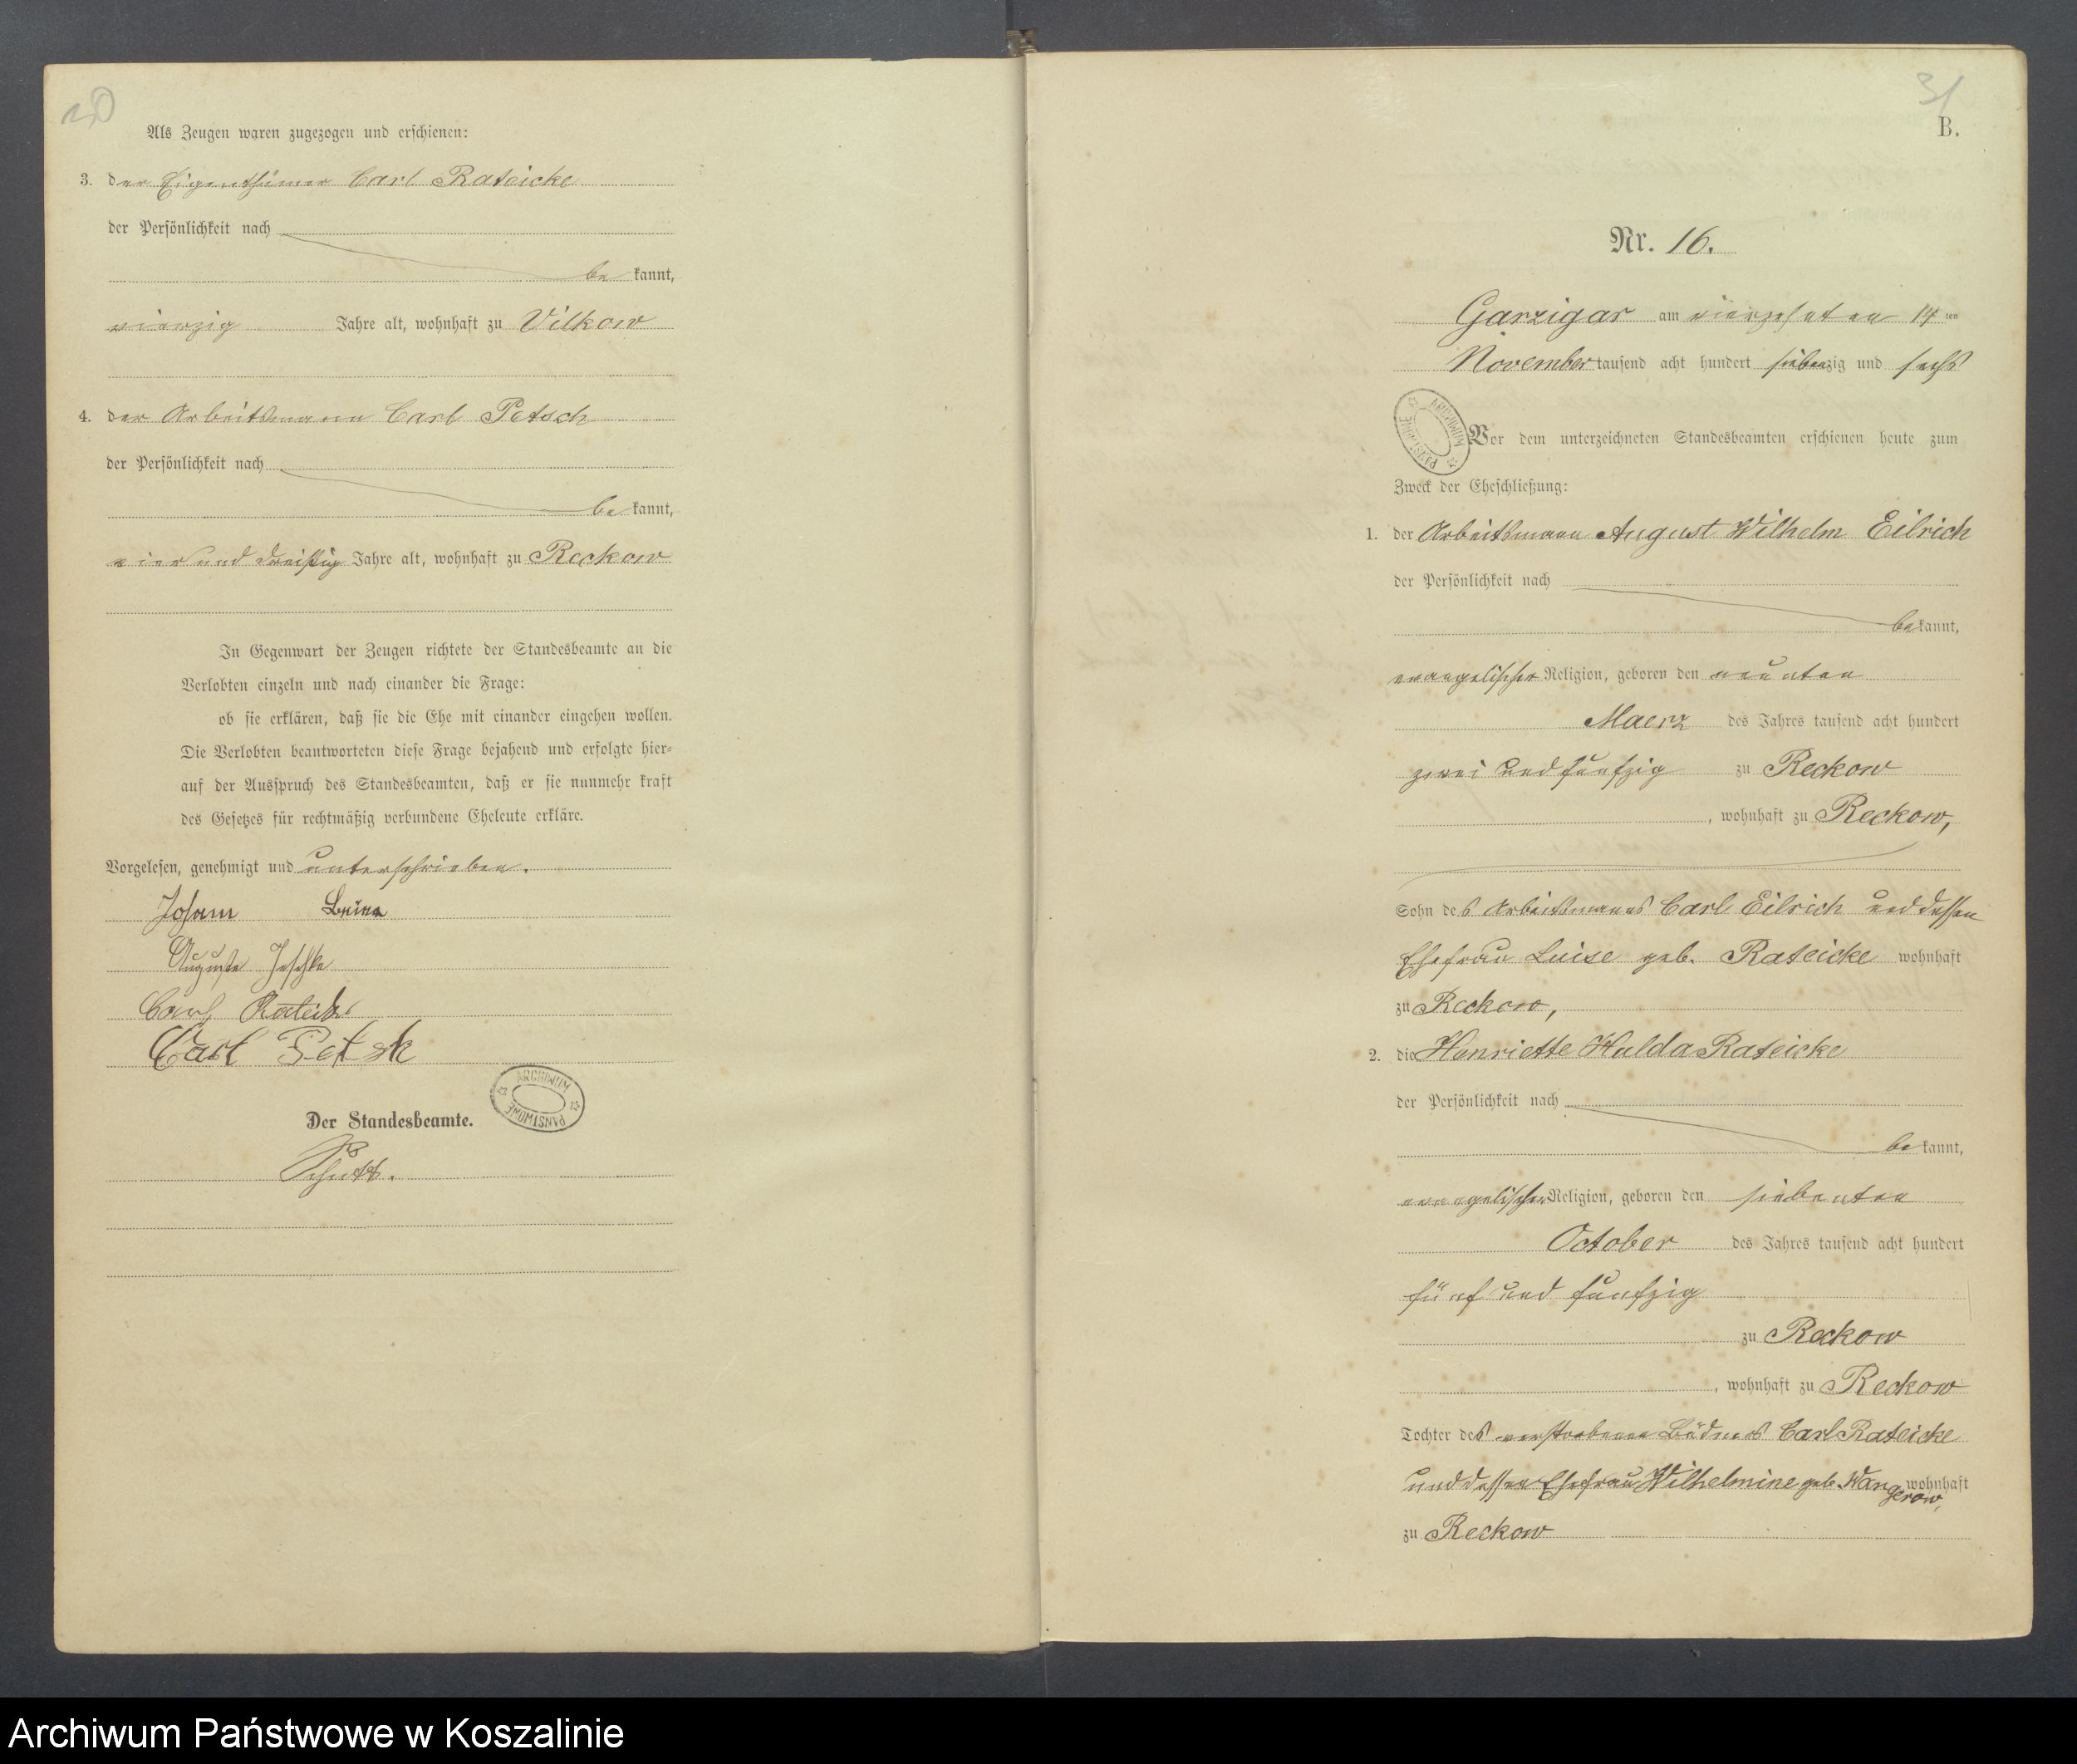 Als Zeugen waren zugezogen und erschienen:
3. der Eigenthümer Carl Rateicke
der Persönlichkeit nach
be kannt,
vierzig Jahre alt, wohnhaft zu Vilkow
4. der Arbeitsmann Carl Petsch
der Persönlichkeit nach
be kannt,
vier und dreißig Jahre alt, wohnhaft zu Reckow
In Gegenwart der Zeugen richtete der Standesbeamte an die
Verlobten einzeln und nach einander die Frage:
ob sie erklären, daß sie die Ehe mit einander eingehen wollen.
Die Verlobten beantworteten diese Frage bejahend und erfolgte hier-
auf der Ausspruch des Standesbeamten, daß er sie nunmehr kraft
des Gesetzes für rechtmäßig verbundene Eheleute erkläre.
Vorgelesen, genehmigt und unterschrieben.
Johann
Auguste Jeschke
Carl Rateike
Carl Petsk
ARCHIWUM PAŃSTWOWE
Der Standesbeamte.
31
B.
Nr. 16.
Garzigar am vierzehnten 14 ten
November tausend acht hundert siebenzig und sechs
ARCHIWUM PAŃSTWOWE
Vor dem unterzeichneten Standesbeamten erschienen heute zum
Zweck der Eheschließung:
1. der Arbeitsmann August Wilhelm Eilrich
der Persönlichkeit nach
be kannt,
evangelischer Religion, geboren den neunten
Maerz des Jahres tausend acht hundert
zwei und fünfzig zu Reckow
, wohnhaft zu Reckow,
Sohn des Arbeitsmanns Carl Eilrich und dessen
Ehefrau Luise geb. Rateicke wohnhaft
zu Reckow,
2. die Henriette Hulda Rateicke
der Persönlichkeit nach
be kannt,
evangelischer Religion, geboren den siebenten
October des Jahres tausend acht hundert
fünf und funfzig
zu Reckow
, wohnhaft zu Reckow
Tochter des verstorbenen Büdners Carl Rateicke
und dessen Ehefrau Wilhelmine geb. Wangerow, wohnhaft
zu Reckow
Archiwum Państwowe w Koszalinie